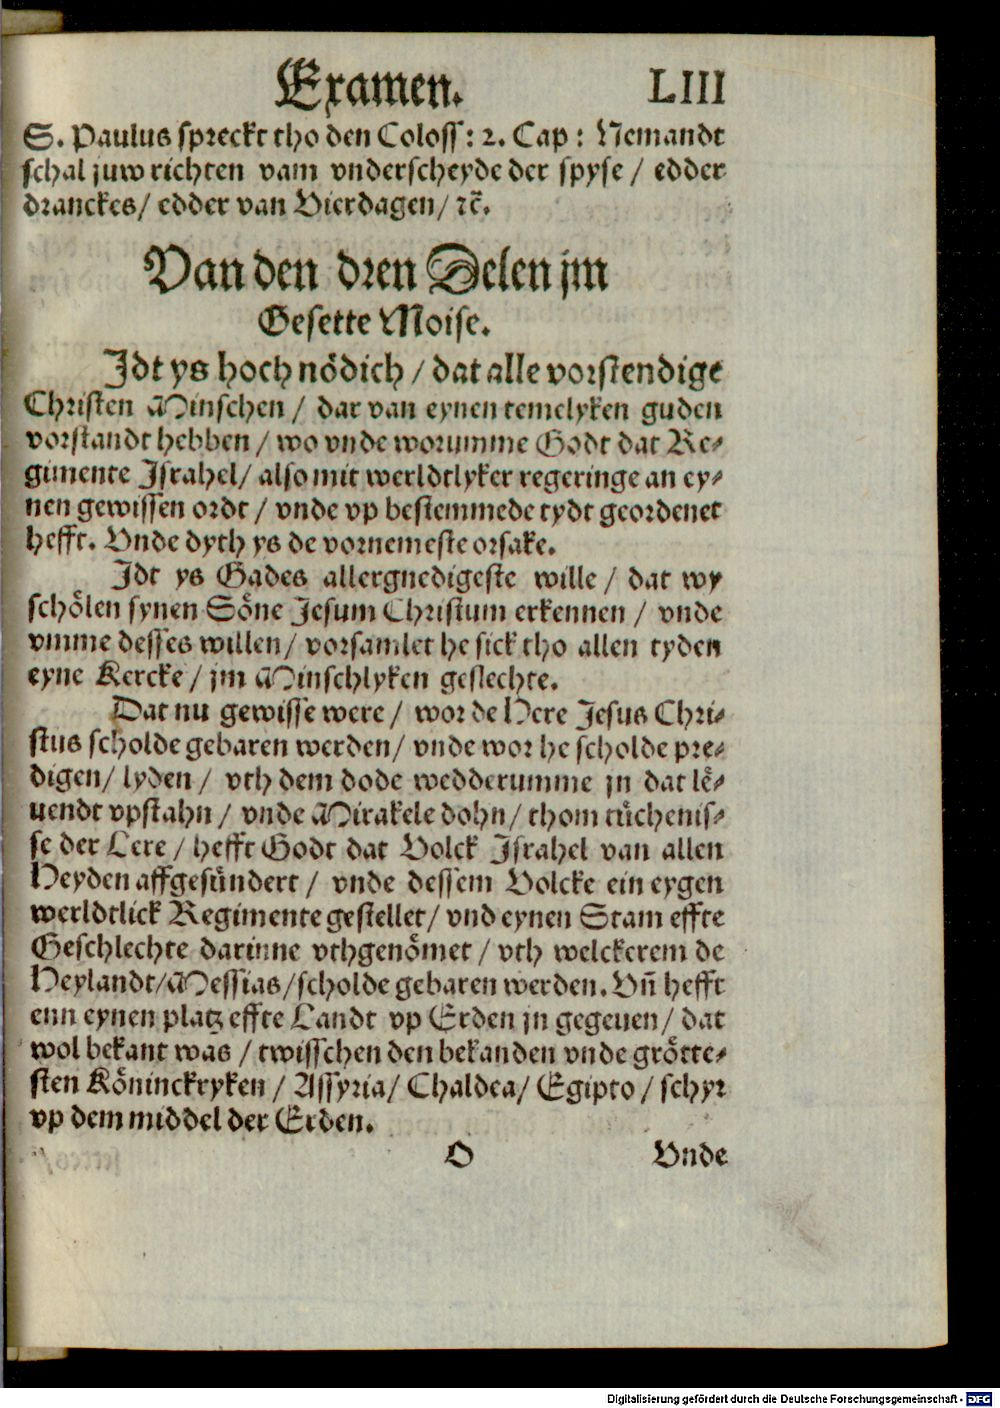 Examen. LIII
S. Paulus spreckt tho den Coloss: 2. Cap: Nemandt
schal juw richten vam vnderscheyde der spyse / edder
dranckes/ edder van Vierdagen/ ꝛc̃.
Van den dren Delen jm
Gesette Moise.
Jdt ys hoch nödich / dat alle vorstendige
Christen Minschen / dar van eynen temelyken guden
vorstandt hebben / wo vnde worumme Godt dat Re-
gimente Jsrahel/ also mit werldtlyker regeringe an ey-
nen gewissen ordt / vnde vp bestemmede tydt geordenet
hefft. Vnde dyth ys de vornemeste orsake.
Jdt ys Gades allergnedigeste wille / dat wy
schölen synen Söne Jesum Christum erkennen / vnde
vmme desses willen/ vorsamlet he sick tho allen tyden
eyne Kercke / jm Minschlyken geslechte.
Dat nu gewisse were / wor de Here Jesus Chri-
stus scholde gebaren werden/ vnde wor he scholde pre-
digen/ lyden / vth dem dode wedderumme jn dat lë-
uendt vpstahn / vnde Mirakele dohn/ thom tüchenis-
se der Lere / hefft Godt dat Volck Jsrahel van allen
Heyden affgesündert / vnde dessem Volcke ein eygen
werldtlick Regimente gestellet/ vnd eynen Stam effte
Geschlechte darinne vthgenömet / vth welckerem de
Heylandt/Messias/scholde gebaren werden. Vñ hefft
enn eynen platz effte Landt vp Erden jn gegeuen/ dat
wol bekant was / twisschen den bekanden vnde grötte-
sten Köninckryken / Assyria/ Chaldea/ Egipto / schyr
vp dem middel der Erden.
O Vnde
Digitalisierung gefördert durch die Deutsche Forschungsgemeinschaft - DFG